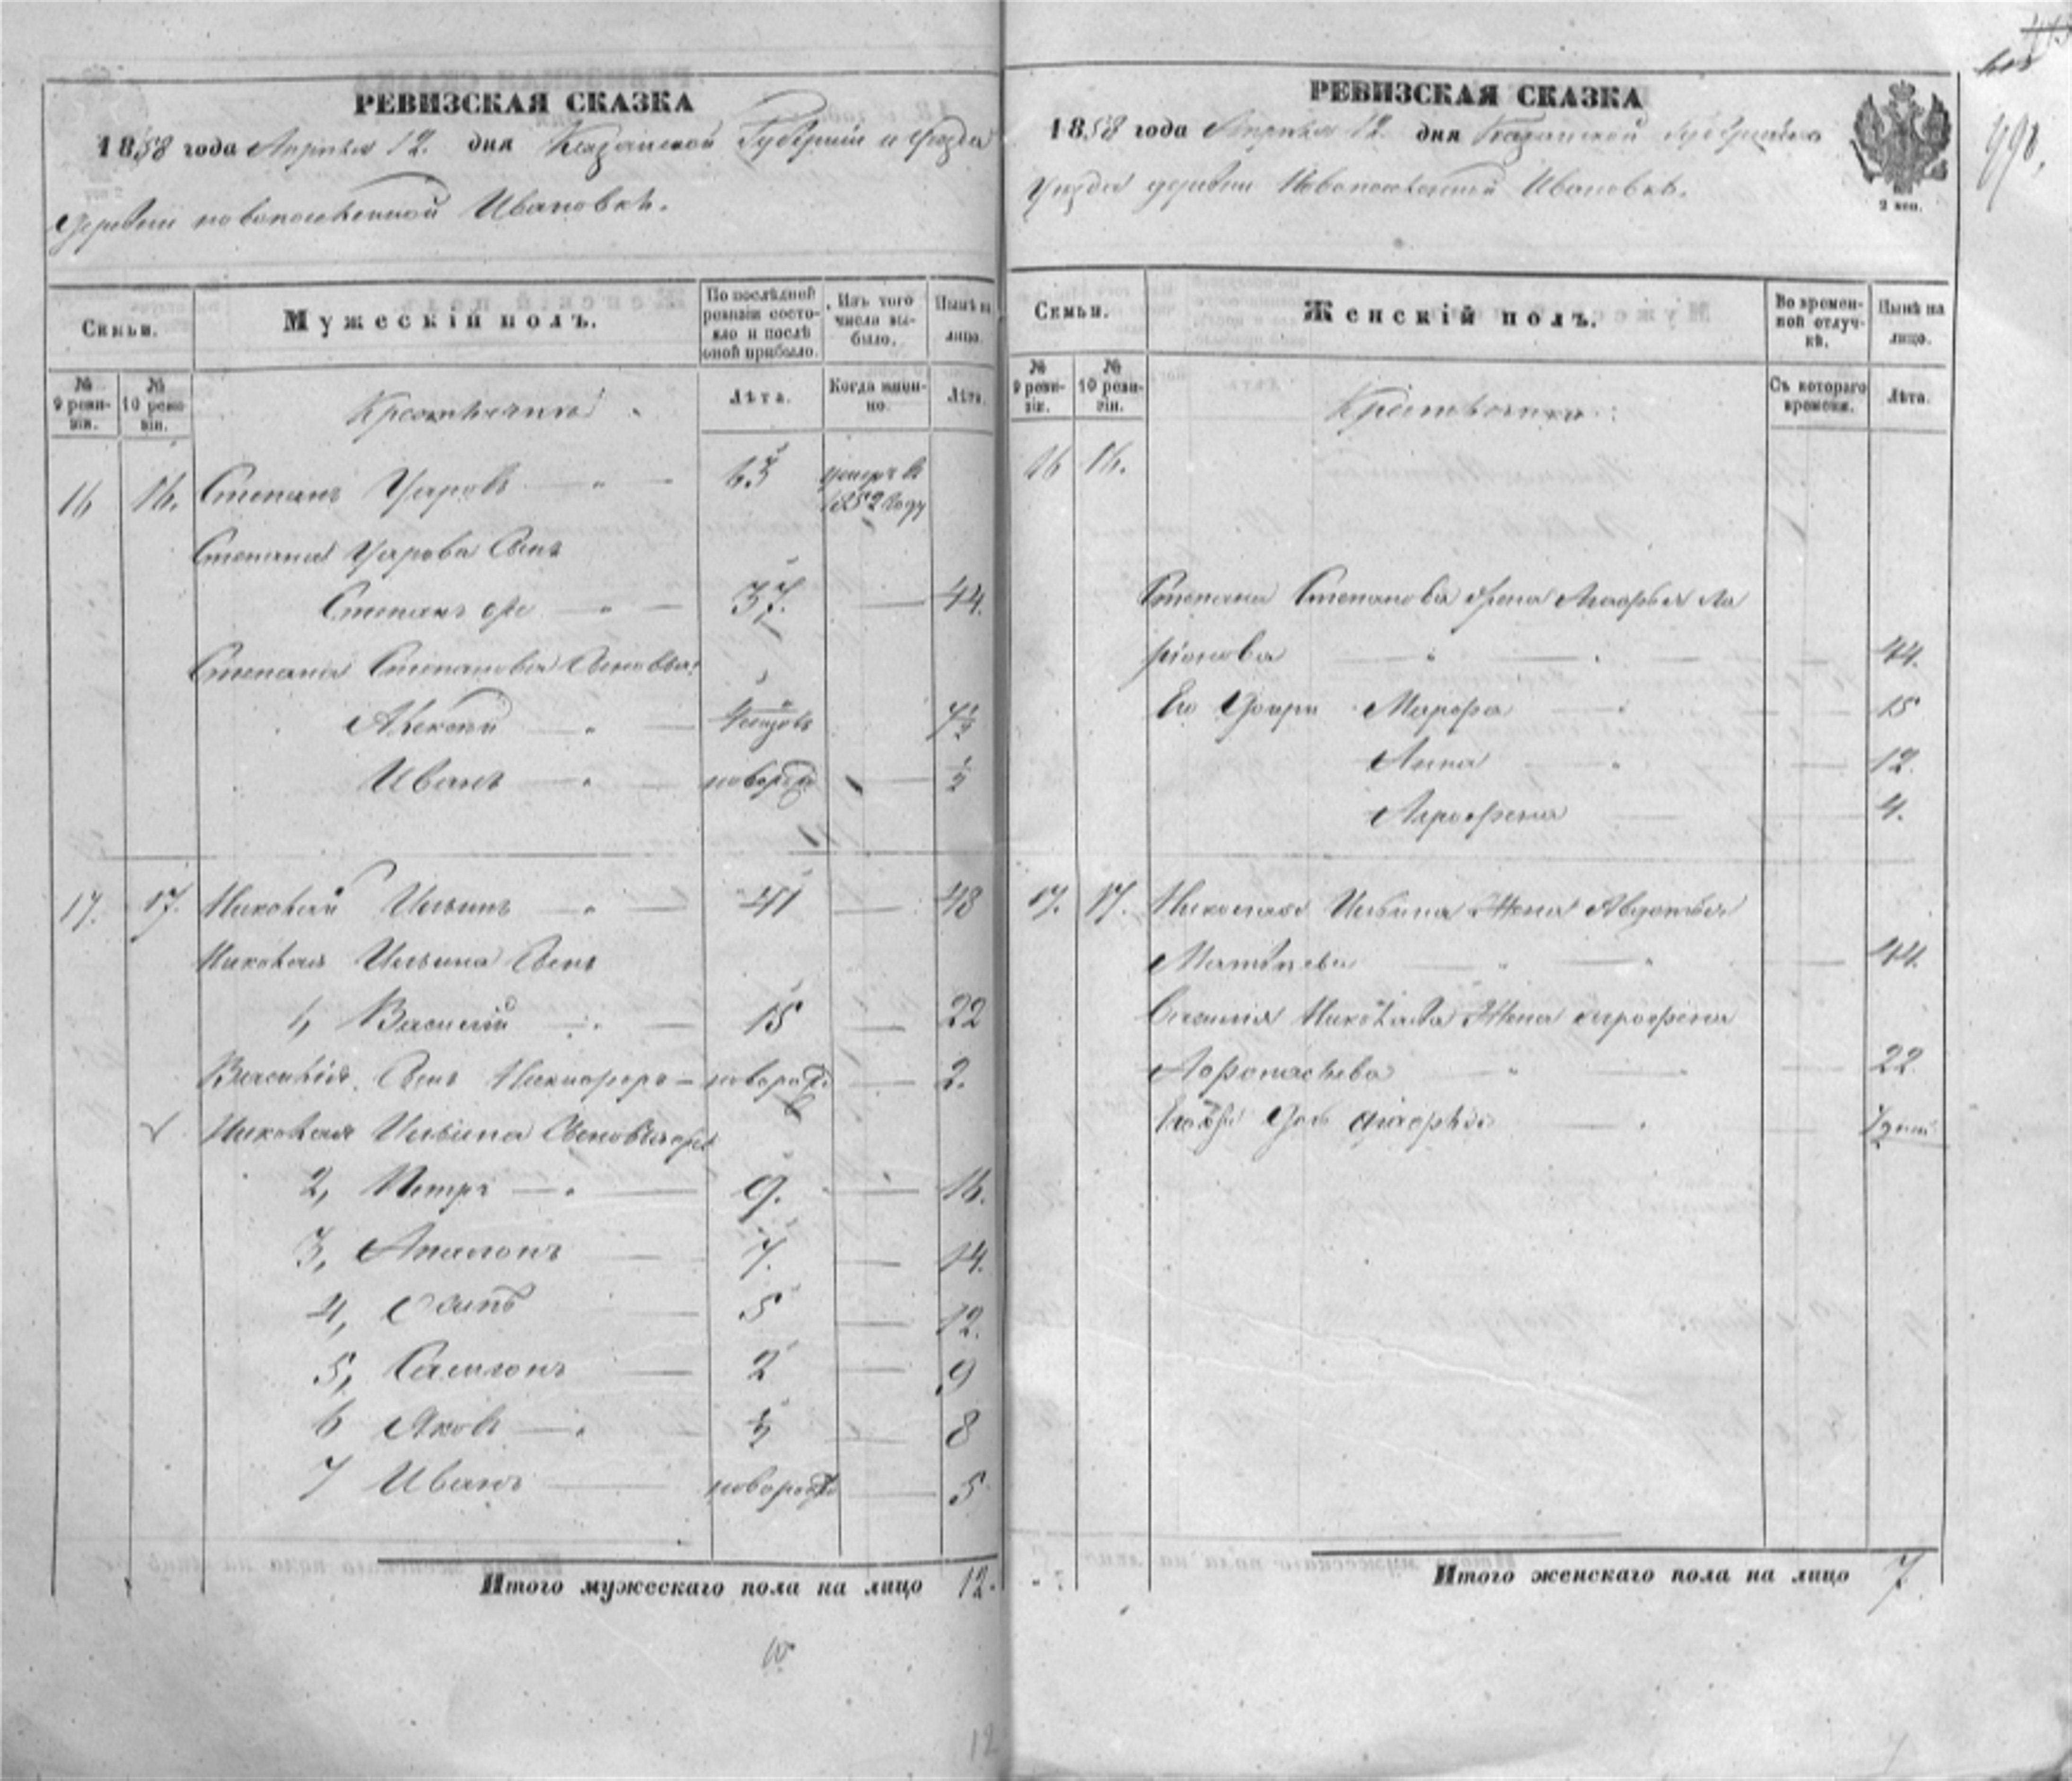 РЕВИЗСКАЯ СКАЗКА
1858 года Апреля 12. дня Казанской Губерніи и Уезда
Деревни новопоселенной Ивановки.
Семьи.
Мужескій полъ.
По послѣдней ревизіи состояло и послѣ оной прибыло.
Изъ того числа выбыло.
Нынѣ на лицо.
№ 9 ревизіи.
№ 10 ревизіи.
Крестьяне
Лѣта.
Когда именно.
Лѣта.
16 16. Степанъ Уаровъ 63 умеръ в 1852 году
Степана Уарова Сынъ
Степанъ же 37. 44.
Степана Степанова Сыновья:
Алексей 7 1/2
Иванъ новорожд 1/2
17. 17. Николай Ильинъ 41 48
Николая Ильина Сынъ
1, Василій 15 22
Василія Сынъ Никифоръ новорожд. 2.
Николая Ильина Сыновья
2, Петръ 9. 16.
3, Апалонъ 7. 14.
4, Осипъ 5 12.
5, Самсонъ 2 9
6 Яковъ 8
7 Иванъ новорожд 5
Итого мужескаго пола на лицо 12.
12
РЕВИЗСКАЯ СКАЗКА
1858 года Апреля 12 дня Казанской Губерніи и
Уезда деревни Новопоселенной Ивановки.
2 коп.
Семьи.
Женскій полъ.
Во временной отлучкѣ.
Нынѣ на лицо.
№ 9 ревизіи.
№ 10 ревизіи.
Съ котораго времени.
Лѣта.
16 16.
Степана Степанова жена Марфья Ла
ріонова 44.
Его Дочери Марфа 15
Анна 12.
Агрофена 4.
17. 17. Николая Ильина Жена Авдотья
Матвеева 44.
Василія Николаева Жена Агрофена
Афонасьева 22
Дочь
Итого женскаго пола на лицо 7